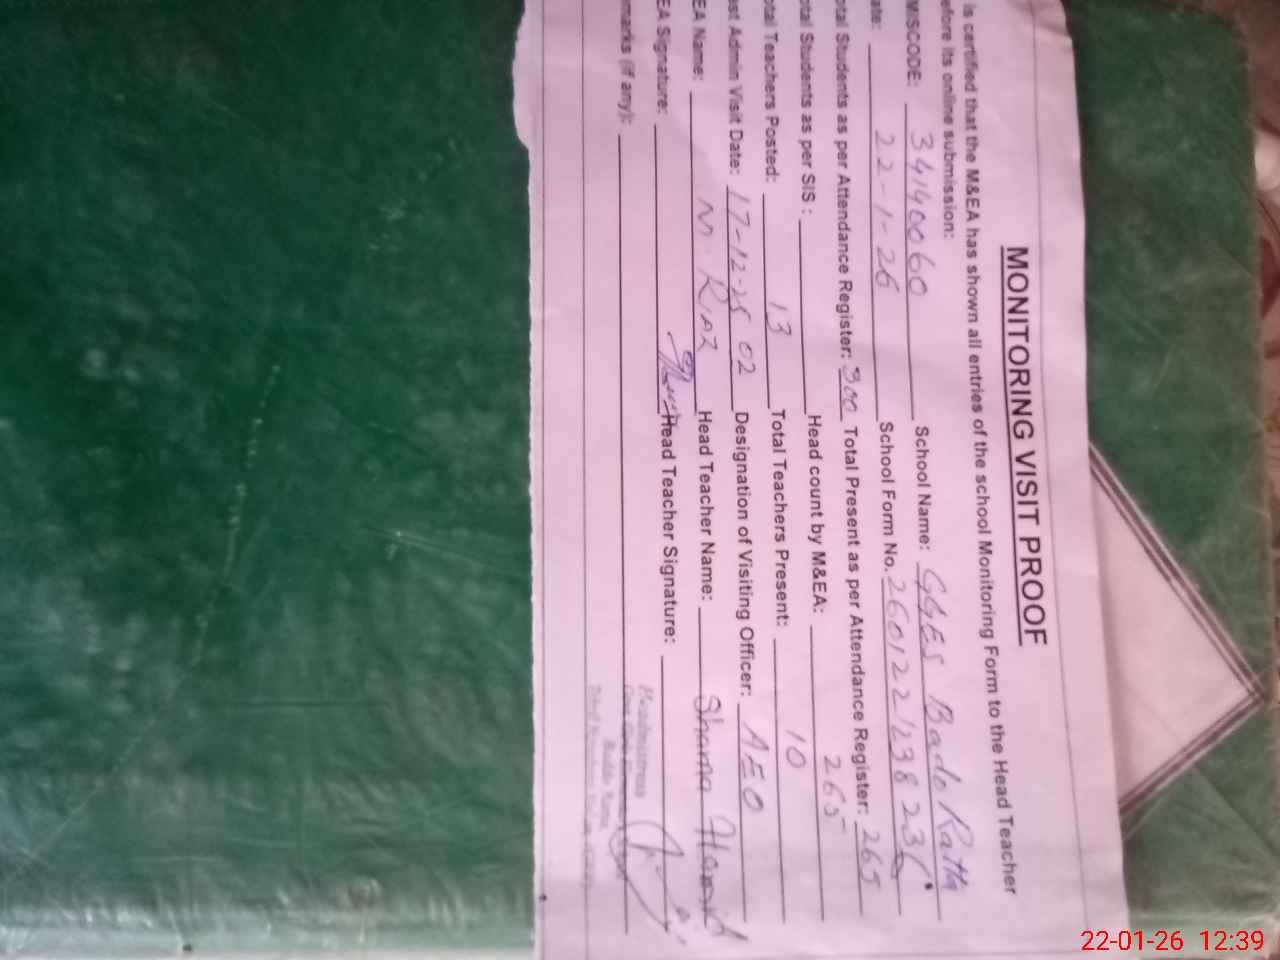 MONITORING VISIT PROOF
is certified that the M&EA has shown all entries of the school Monitoring Form to the Head Teacher
efore its online submission:
MISCODE: 34140060 School Name: GGES Bado Ratta
ate: 22-1-26 School Form No. 
otal Students as per Attendance Register: 300 Total Present as per Attendance Register: 265
otal Students as per SIS : Head count by M&EA: 265
otal Teachers Posted: 13 Total Teachers Present: 10
ast Admin Visit Date: 17-12-25 02 Designation of Visiting Officer: AEO
EA Name: M. Riaz Head Teacher Name: Shama
EA Signature: Head Teacher Signature:
marks (if any):
Headmistress
22-01-26 12:39